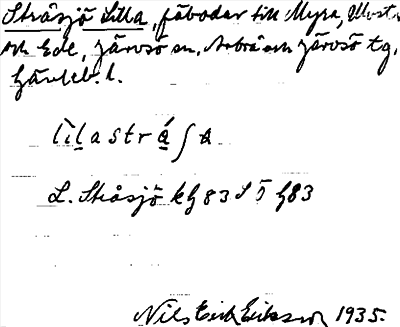 Stråsjö Lilla, fäbodar till Myra,
och Ede, Järvsö sn, Arbrå och Järvsö tg,
Gävleb. l.
lìlastrá ʃa
L. Stråsjö kg 83 S Ö g83
Nils Erik Eriksson 1935.